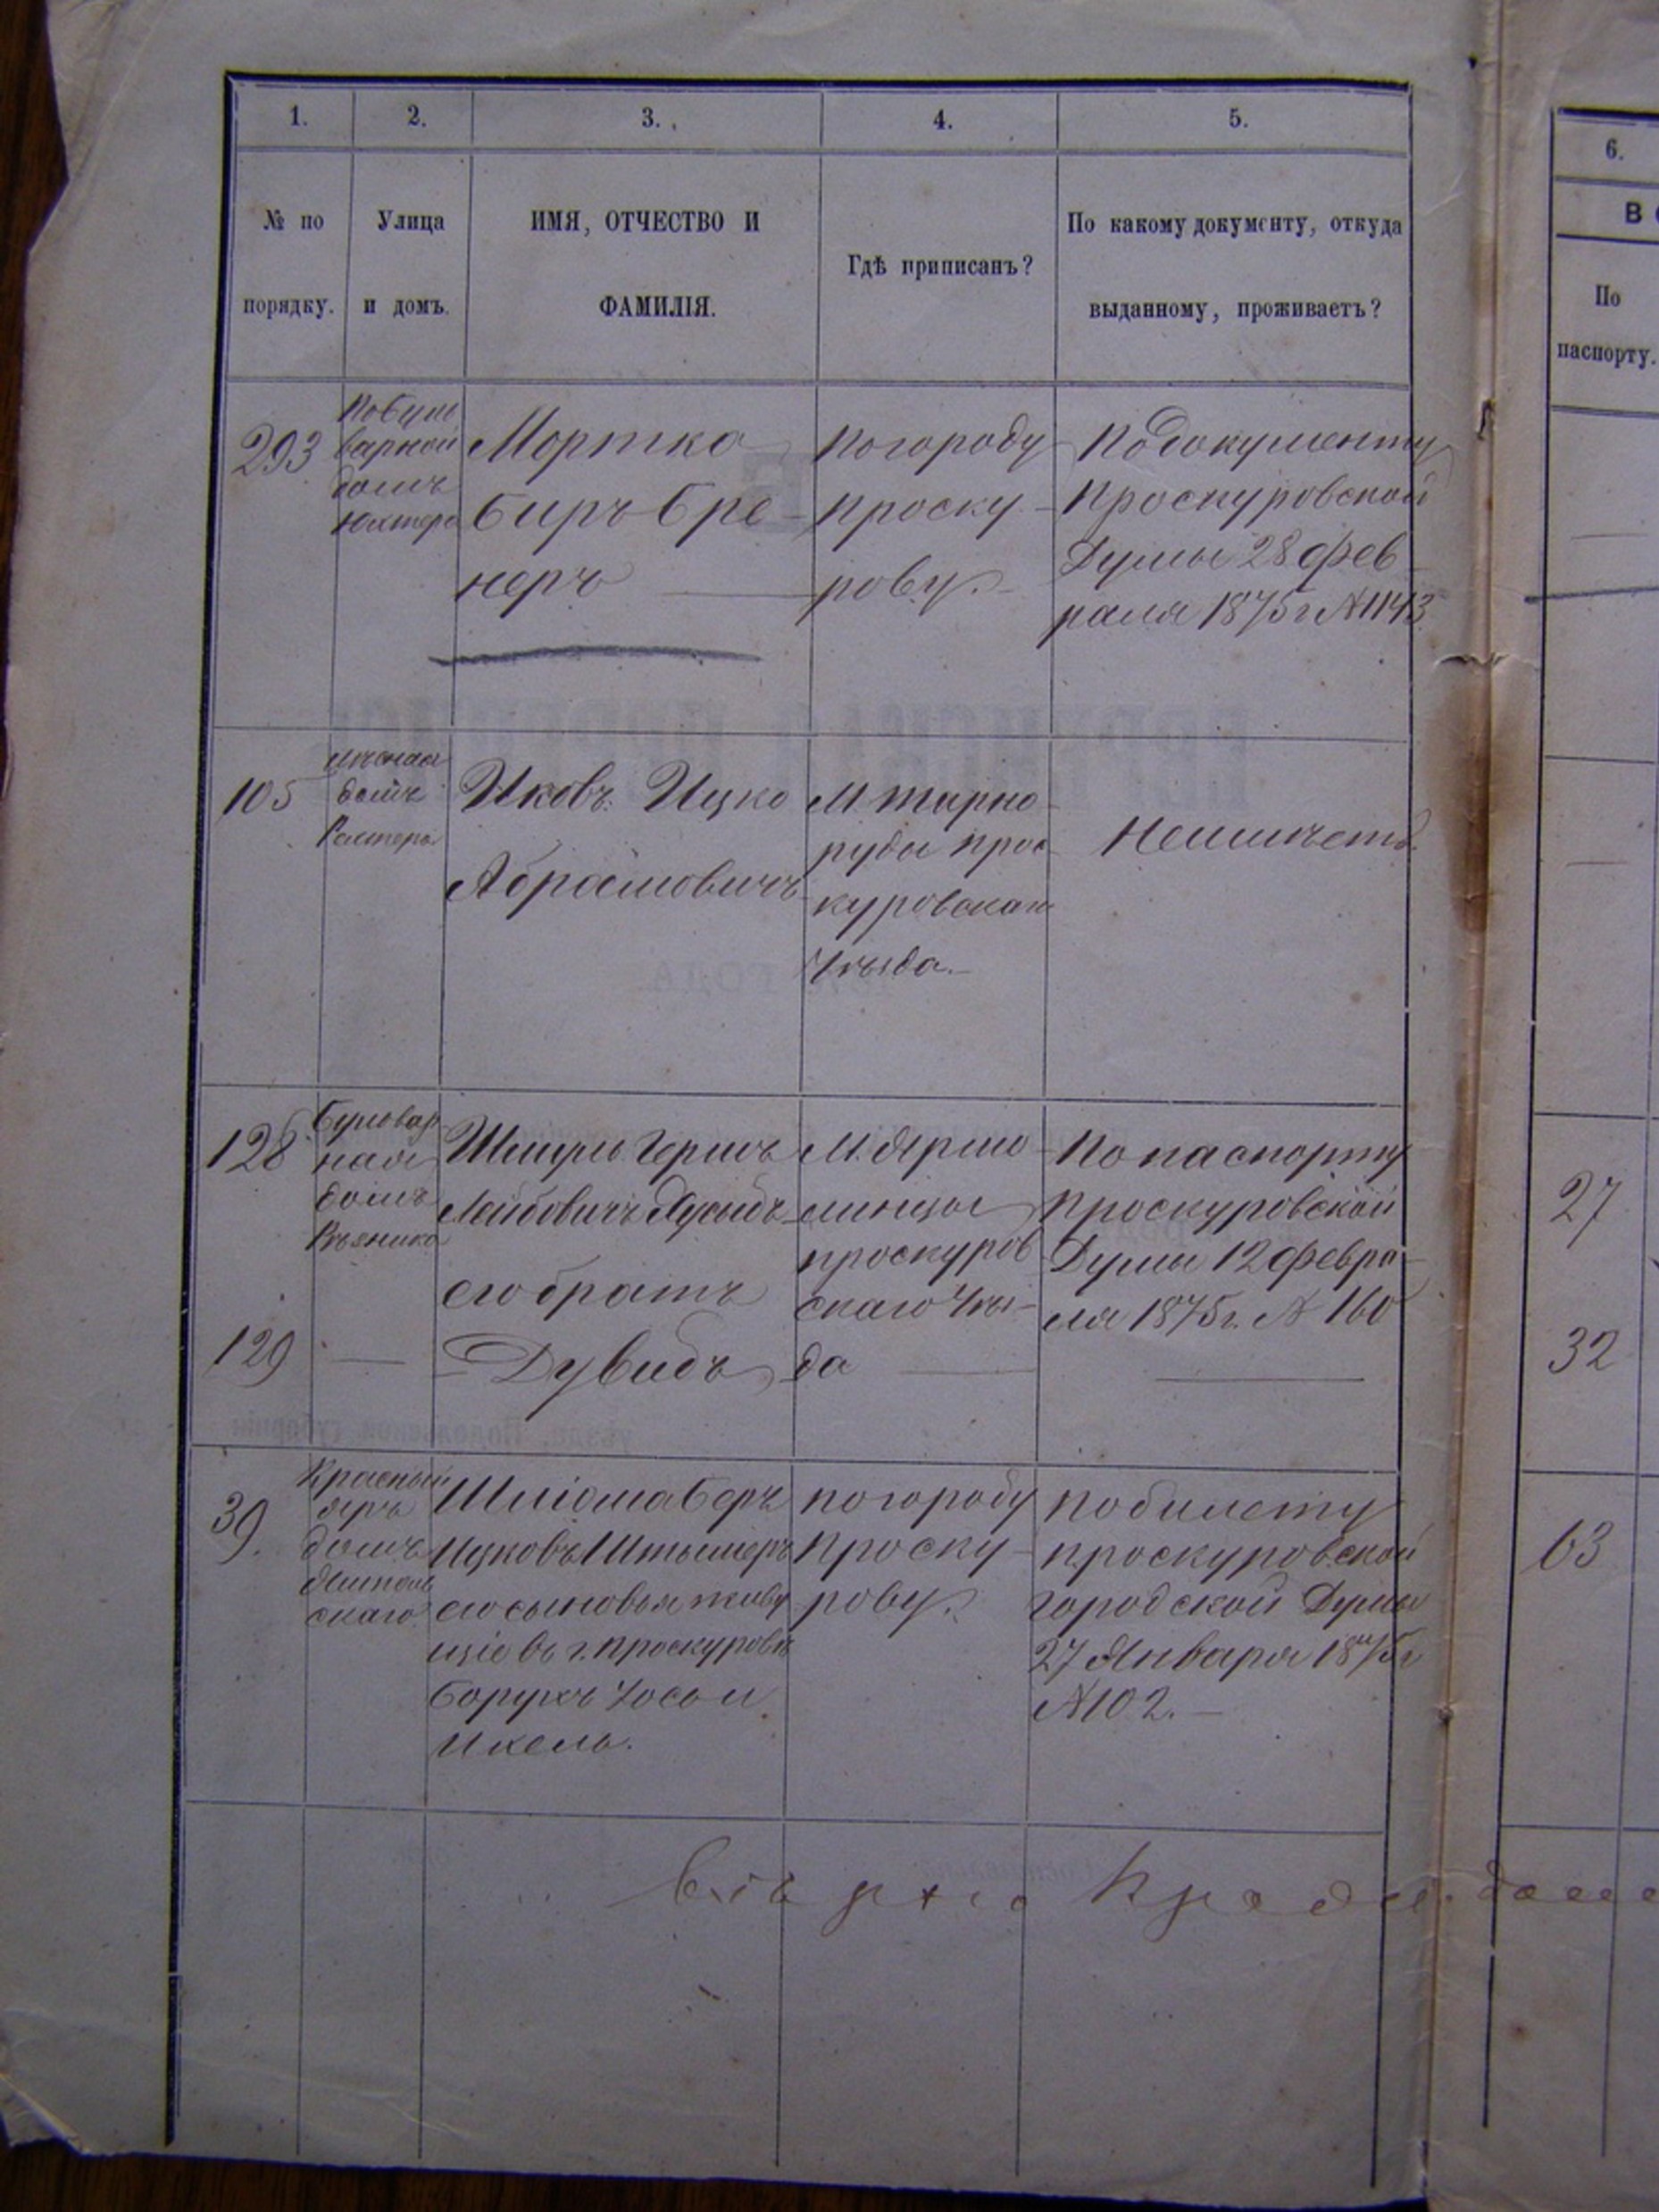 1. 2. 3. 4. 5.
№ по порядку.
Улица и домъ.
ИМЯ, ОТЧЕСТВО И
ФАМИЛІЯ.
Гдѣ приписанъ?
По какому документу, откуда
выданному, проживаетъ?
293
варной
домъ
Мортко
Биръ Бре-
неръ
По городу
Проску-
рову.
По документу
Проскуровской
Думы 28 фев-
раля 1875 г №1143
105
домъ
Ицко
Абрамовичъ
М Тарно-
руды Прос-
куровскаго
Уѣзда.
Неимѣетъ.
128
Булвар
ная
домъ
Шмуль Гершъ
Лейбовичъ
его братъ
М. Ярмо-
линцы
Проскуров-
скаго Уѣз-
да
По паспорту
Проскуровской
Думы 12 февра-
ля 1875 г. № 160
129
Дувидъ
39.
Красный
яръ
домъ
скаго
Шліома Беръ
Ицковъ
его сыновья живу
щіе въ г. Проскуровѣ
Борухъ Іось и
Ихель.
по городу
Проску-
рову.
по билету
проскуровской
городской Думы
27 Января 1875 г
№102.
6.
По
паспорту.
27
32
63